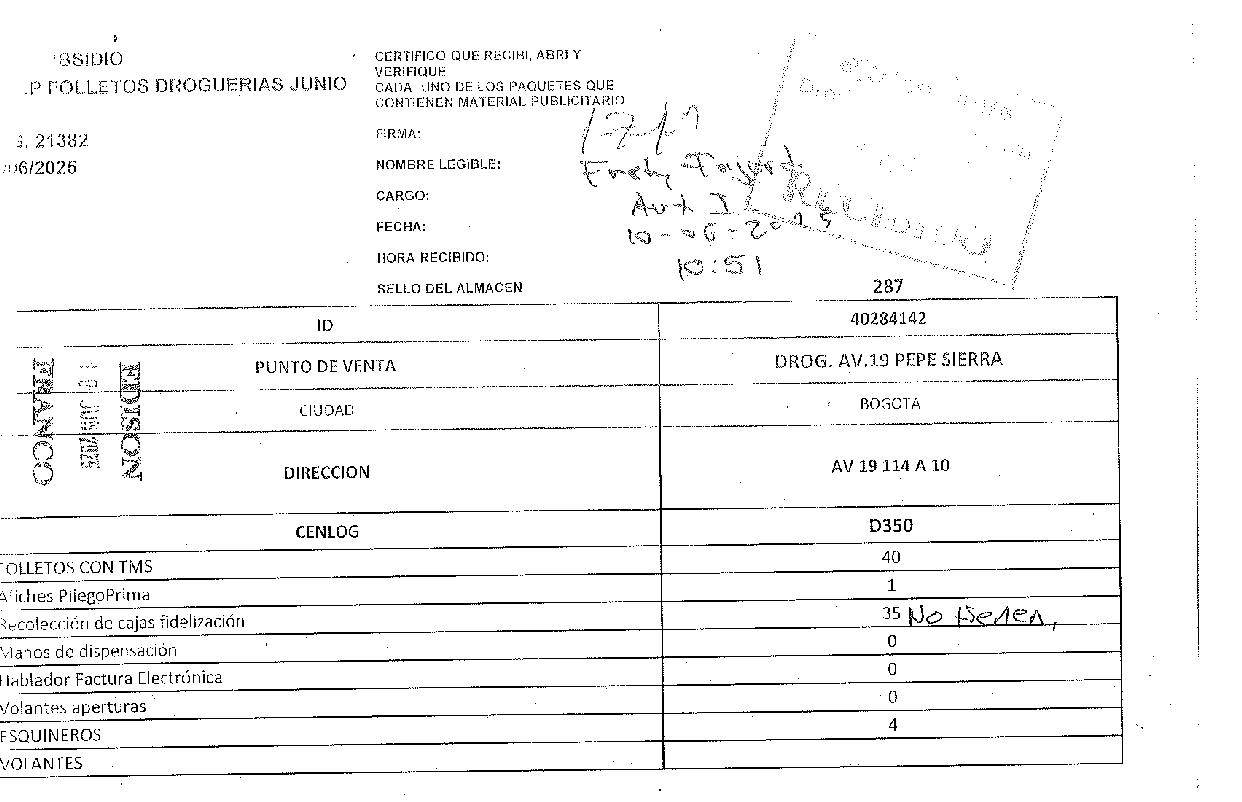 SSIDIO
P FOLLETOS DROGUERIAS JUNIO
21382
06/2026
CERTIFICO QUE RECIBI, ABRI Y
VERIFIQUE
CADA UNO DE LOS PAQUETES QUE
CONTIENEN MATERIAL PUBLICITARIO
FIRMA:
NOMBRE LEGIBLE: Fredy
CARGO: Aux I
FECHA: 10-06-2025
HORA RECIBIDO: 10:51
SELLO DEL ALMACEN
RECIBIDO
287
ID 40284142
PUNTO DE VENTA DROG. AV.19 PEPE SIERRA
CIUDAD BOGOTA
DIRECCION AV 19 114 A 10
EDISON
FRANCO
CENLOG D350
FOLLETOS CON TMS 40
Afiches PliegoPrima 1
Recolección de cajas fidelización 35 No tienen,
Manos de dispensación 0
Hablador Factura Electrónica 0
Volantes aperturas 0
ESQUINEROS 4
VOLANTES